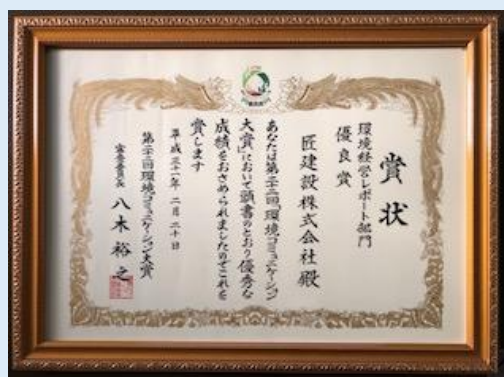 賞状
環境経営レポート部門
優良賞
匠建設株式会社殿
あなたは第二十二回「環境コミュニケーション
大賞」において頭書のとおり優秀な
成績をおさめられましたのでこれを
賞します
平成三十一年二月二十日
第二十二回環境コミュニケーション大賞
審査委員長 八木裕之